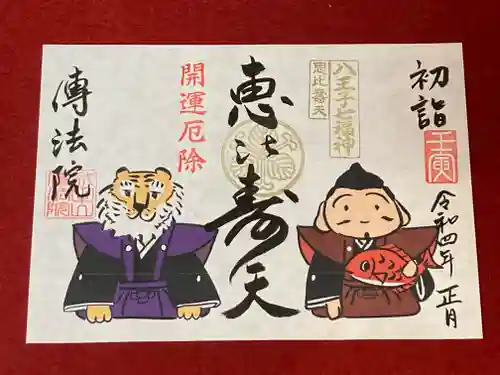 初詣
壬寅
令和四年 正月
八王子七福神
恵比寿天
恵比寿天
開運厄除
傳法院